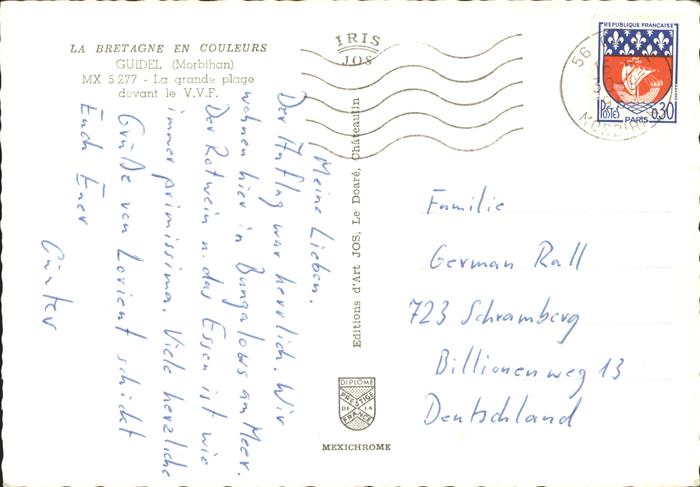 LA BRETAGNE EN COULEURS
GUIDEL (Morbihan)
MX 5 277 - La grande plage
devant le V.V.F.
IRIS
JOS
Meine Lieben.
Der Anflug war herrlich. Wir
wohnen hier in Bungalows am Meer.
Der Rotwein u. das Essen ist wie
immer primissima. Viele herzliche
Grüße von Lorient schickt
Euch Euer
Günter
Editions d'Art JOS, Le Doaré, Châteaulin
DIPLOME
PRESTIGE
DE LA
FRANCE
MEXICHROME
REPUBLIQUE FRANCAISE
POSTES
PARIS
0,30
56
MORBIHAN
Familie
German Rall
723 Schramberg
Billionenweg 13
Deutschland